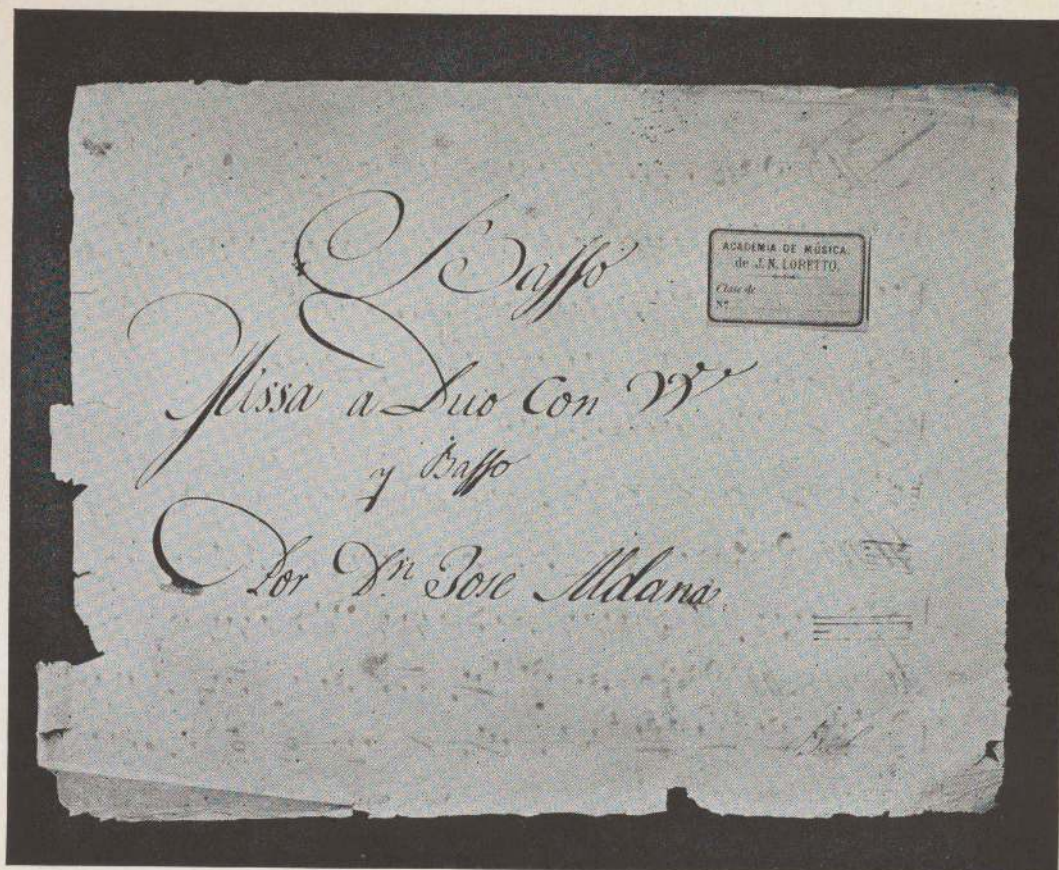 Basso
ACADEMIA DE MÚSICA
de J. N. LORETTO.
Clase de
Nº
Missa a Duo Con VVˢ
y Basso
Por Dⁿ Jose Aldana